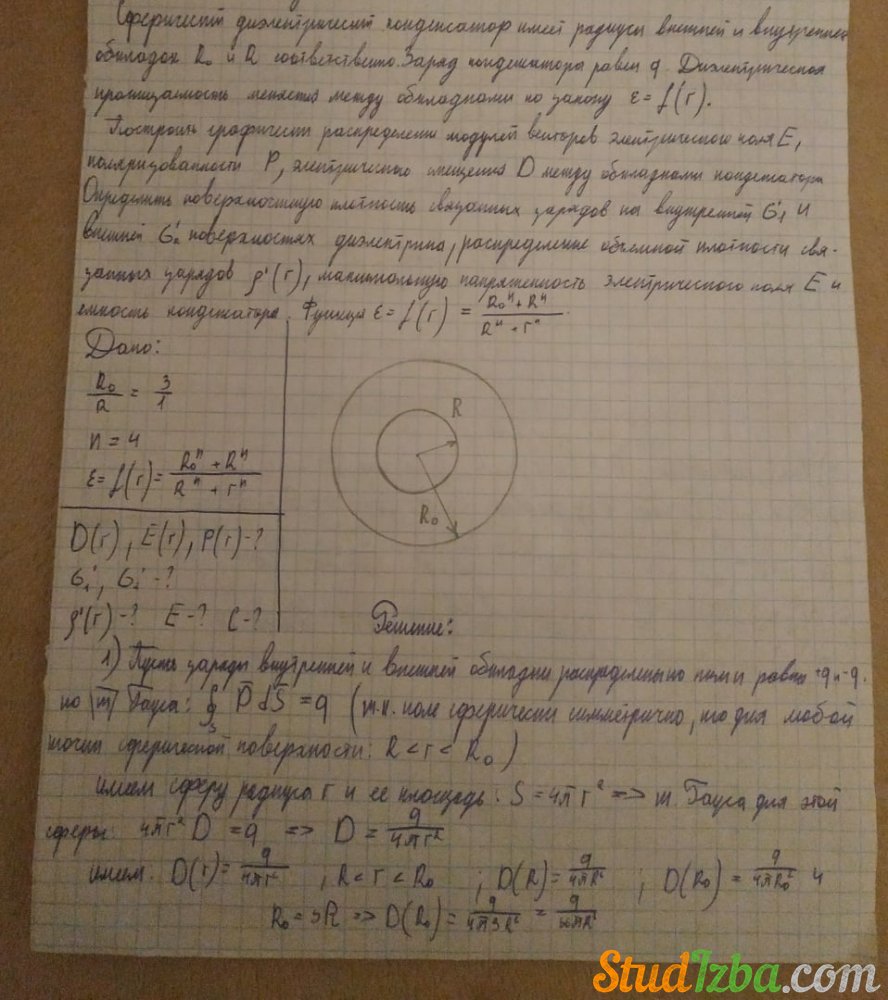 Сферический диэлектрический конденсатор имеет радиусы внешней и внутренней
обкладок R₀ и R соответственно. Заряд конденсатора равен q. Диэлектрическая
проницаемость меняется между обкладками по закону ε = f(r).
Построить графически распределения модулей векторов электрического поля E,
поляризованности P, электрического смещения D между обкладками конденсатора
Определить поверхностную плотность связанных зарядов на внутренней σ'₁ и
внешней σ'₂ поверхностях диэлектрика, распределение объемной плотности свя-
занных зарядов ρ'(r), максимальную напряженность электрического поля E и
емкость конденсатора. Функция ε = f(r) = (R₀ⁿ + Rⁿ)/(Rⁿ + rⁿ).
Дано:
R₀/R = 3/1
n = 4
ε = f(r) = (R₀ⁿ + Rⁿ)/(Rⁿ + rⁿ)
D(r), E(r), P(r) - ?
σ'₁, σ'₂ - ?
ρ'(r) - ? E - ? C - ?
R
R₀
Решение:
1) Пусть заряды внутренней и внешней обкладки распределены по ним равно q и -q.
по m Гауса: ∮ D̄ dS̄ = q (т.к. поле сферически симметрично, то для любой
S
точки сферической поверхности: R < r < R₀)
имеем сферу радиуса r и ее площадь: S = 4πr² => т. Гауса для этой
сферы: 4πr² D = q => D = q/4πr²
имеем: D(r) = q/4πr² ; R < r < R₀ ; D(R) = q/4πR² ; D(R₀) = q/4πR₀² и
R₀ = 3R => D(R₀) = q/4π3R² =
StudIzba.com